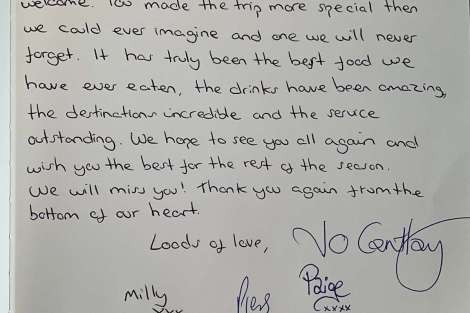 welcome. You made the trip more special then
we could ever imagine and one we will never
forget. It has truly been the best food we
have ever eaten, the drinks have been amazing,
the destinations incredible and the service
outstanding. We hope to see you all again and
wish you the best for the rest of the season.
We will miss you! Thank you again from the
bottom of our heart.
Loads of love,
Milly
Piers
Paige
xxxx